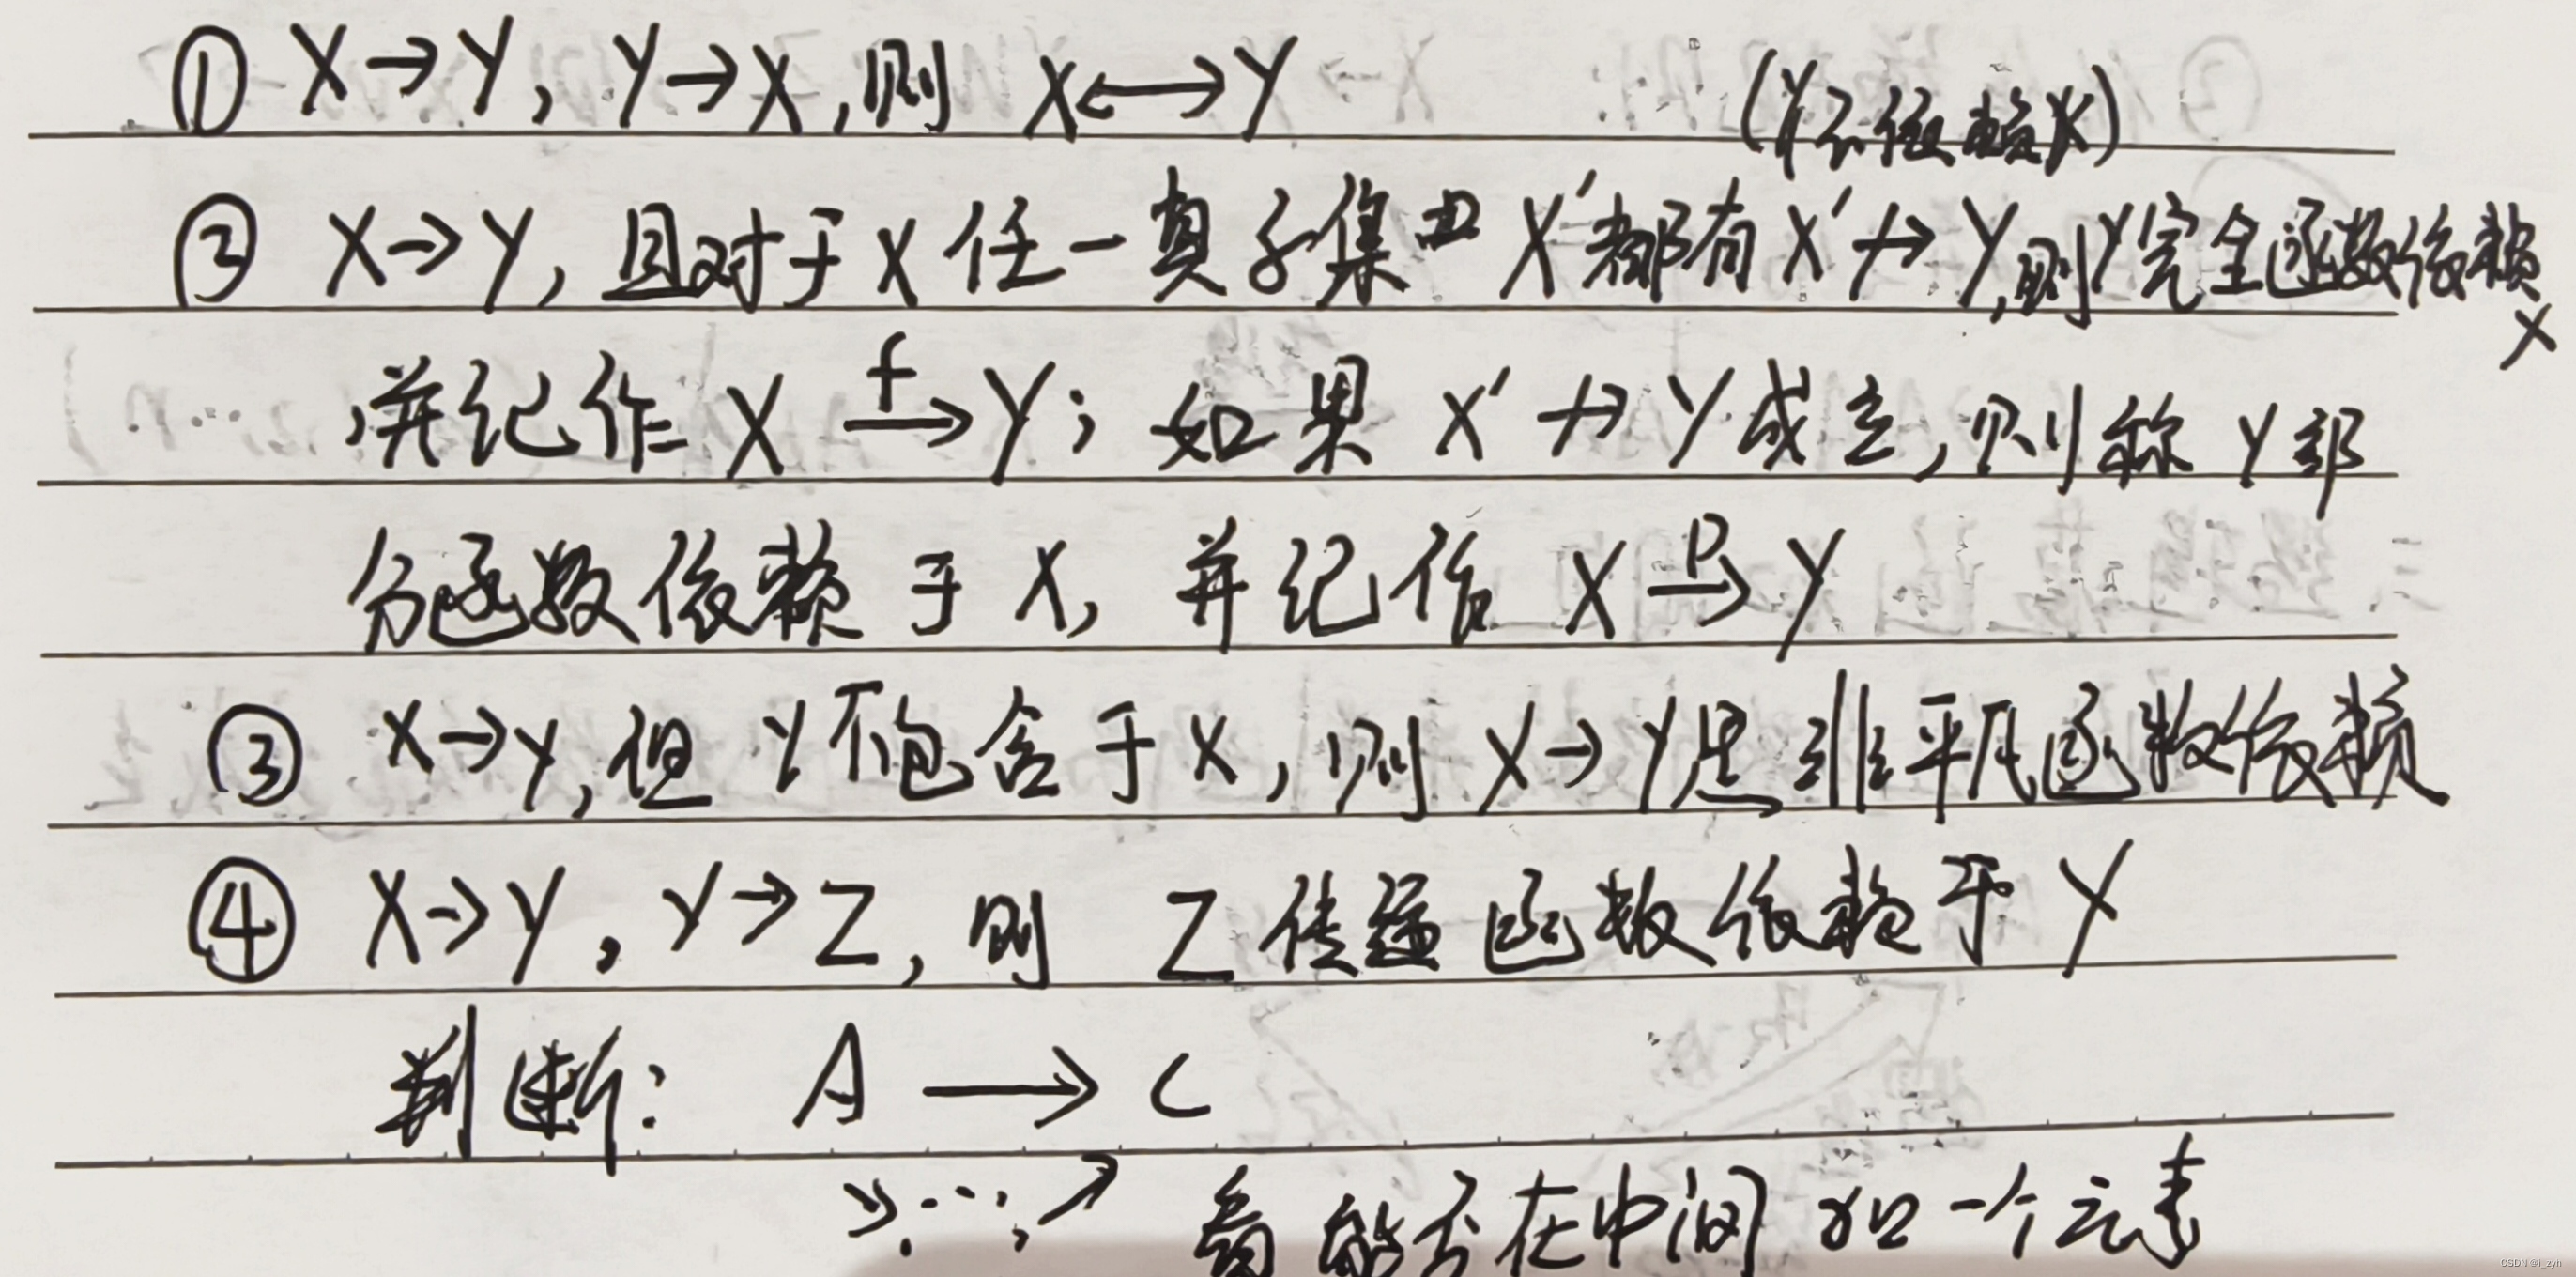 ① X→Y, Y→X, 则 X↔Y
(Y不依赖X)
② X→Y, 且对于X任一真子集 X'都有X'↛Y,则Y完全函数依赖
X
,并记作 X -f→ Y; 如果 X'↛Y成立,则称Y部
分函数依赖于X, 并记作 X -P→ Y
③ X→Y,但Y不包含于X,则X→Y是非平凡函数依赖
④ X→Y,Y→Z,则 Z传递函数依赖于Y
判断: A → C
看能否在中间加一个元素
CSDN @i_zyh